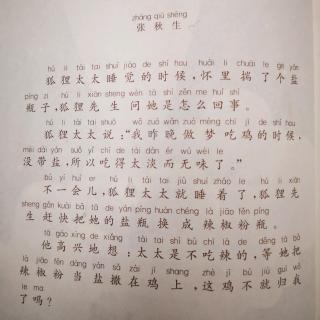 zhāng qiū shēng
张秋生
hú li tài tai shuì jiào de shí hou huái li chuāi le gè yán
狐狸太太睡觉的时候，怀里揣了个盐
píng zi hú li xiān sheng wèn tā shì zěn me huí shì
瓶子，狐狸先生问她是怎么回事。
hú li tài tai shuō wǒ zuó wǎn zuò mèng chī jī de shí hou
狐狸太太说：“我昨晚做梦吃鸡的时候，
méi dài yán suǒ yǐ chī de tài dàn ér wú wèi le
没带盐，所以吃得太淡而无味了。”
bù yí huì er hú li tài tai jiù shuì zháo le hú li xiān
不一会儿，狐狸太太就睡着了，狐狸先
sheng gǎn kuài bǎ tā de yán píng huàn chéng là jiāo fěn píng
生赶快把她的盐瓶换成辣椒粉瓶。
tā gāo xìng de xiǎng tài tai shì bù chī là de děng tā bǎ
他高兴地想：太太是不吃辣的，等她把
là jiāo fěn dàng yán sǎ zài jī shang zhè jī bù jiù guī wǒ
辣椒粉当盐撒在鸡上，这鸡不就归我
le ma
了吗？